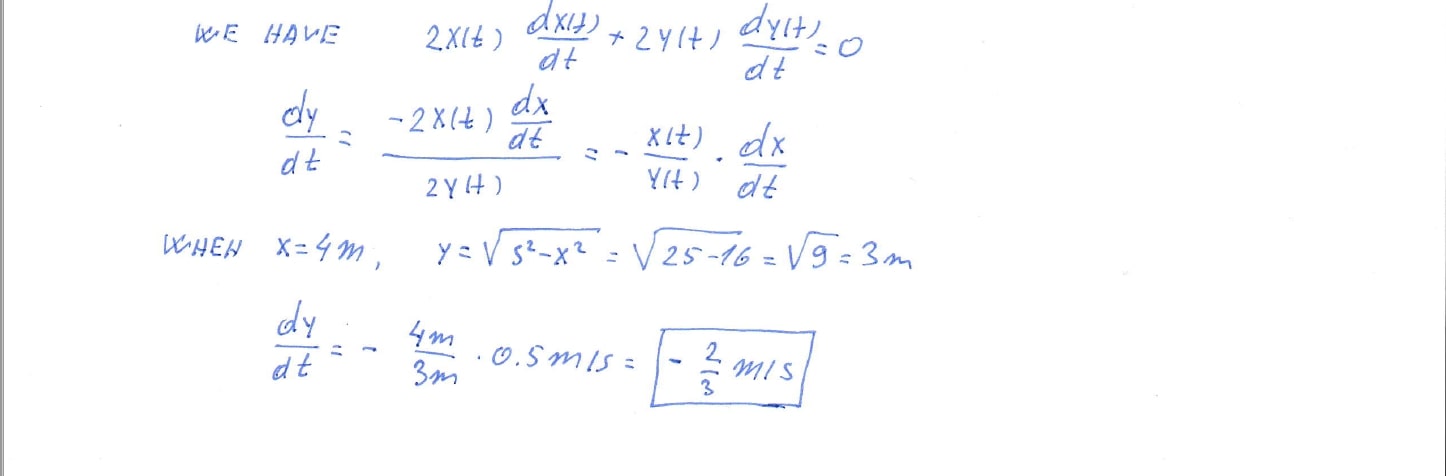 WE HAVE 2X(t) dX(t)/dt + 2Y(t) dY(t)/dt = 0
dy/dt = -2X(t) dx/dt / 2Y(t) = - X(t)/Y(t) · dx/dt
WHEN X=4m, Y=√5²-X² = √25-16 = √9 = 3m
dy/dt = - 4m/3m · 0.5m/s = - 2/3 m/s